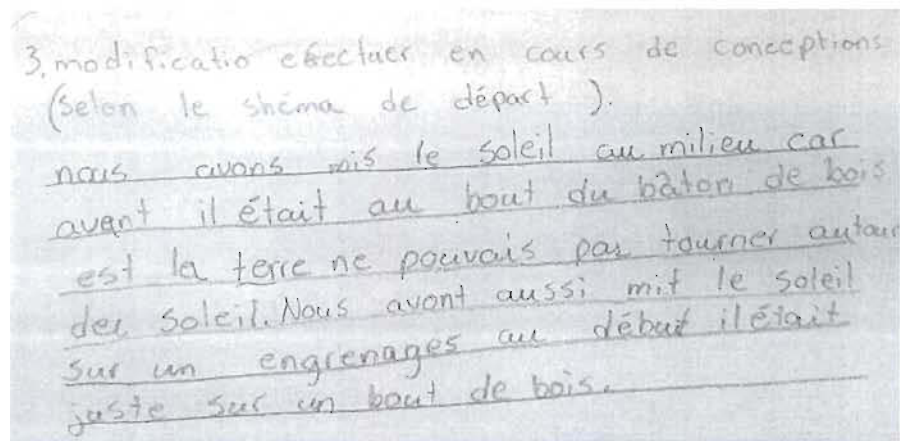 3. modificatio efectuer en cours de conceptions
(Selon le shéma de départ).
nous avons mis le soleil au milieu car
avant il était au bout du bâton de bois
est la terre ne pouvais pas tourner autour
du soleil. Nous avont aussi mit le soleil
sur un engrenages au début il était
juste sur un bout de bois.